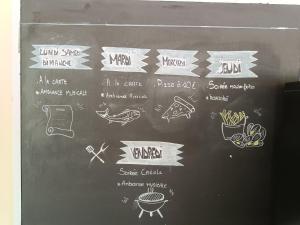 LUNDI SAMEDI
DIMANCHE
A LA CARTE
• AMBIANCE MUSICALE
MARDI
A LA CARTE
• Ambiance Musicale
MERCREDI
Pizza à 10€
JEUDI
Soirée moules frites
• Karaoké
VENDREDI
Soirée Créole
• Ambiance MUSICALE